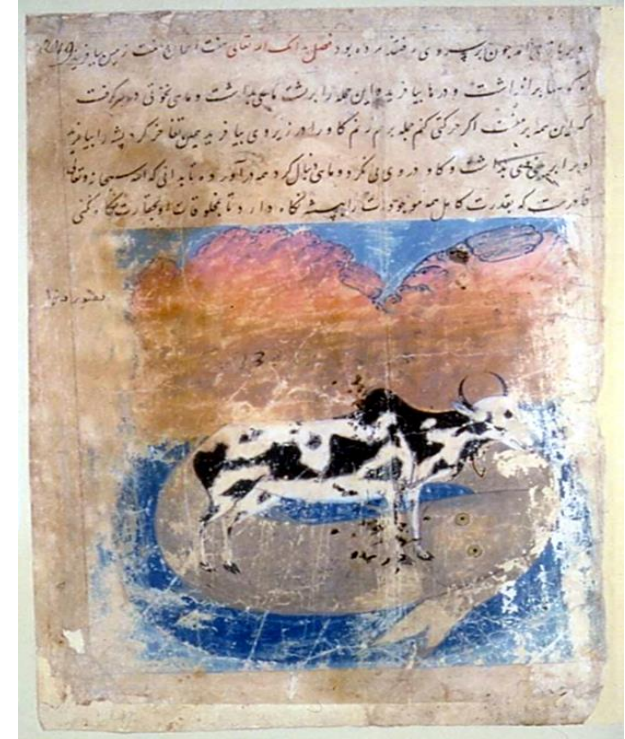 چون بر سر وی رفتند مرده بود فصل بدانک الله تعالی هفت اسمان هفت زمین بیافرید
کوهها بر انداشت و دریا بیافرید و این جمله را بر پشت ماهی بداشت و ماهی نخوتی در سر گرفت
که این همه بر منست اگر حرکتی کنم جمله بر هم زنم گاو را در زیر وی بیافرید همین تفاخر کرد پشه را بیافرید
او برابر بینی بداشت و گاو در وی می نگرد و ماهی دنبال گرد همه در آورده تا بدانی که الله سبحانه و تعالی
قادرست که بقدرت کامل همه موجودات را به پشه نگاه دارد تا بمخلوقات او بحقارت نگاه نکنی
13